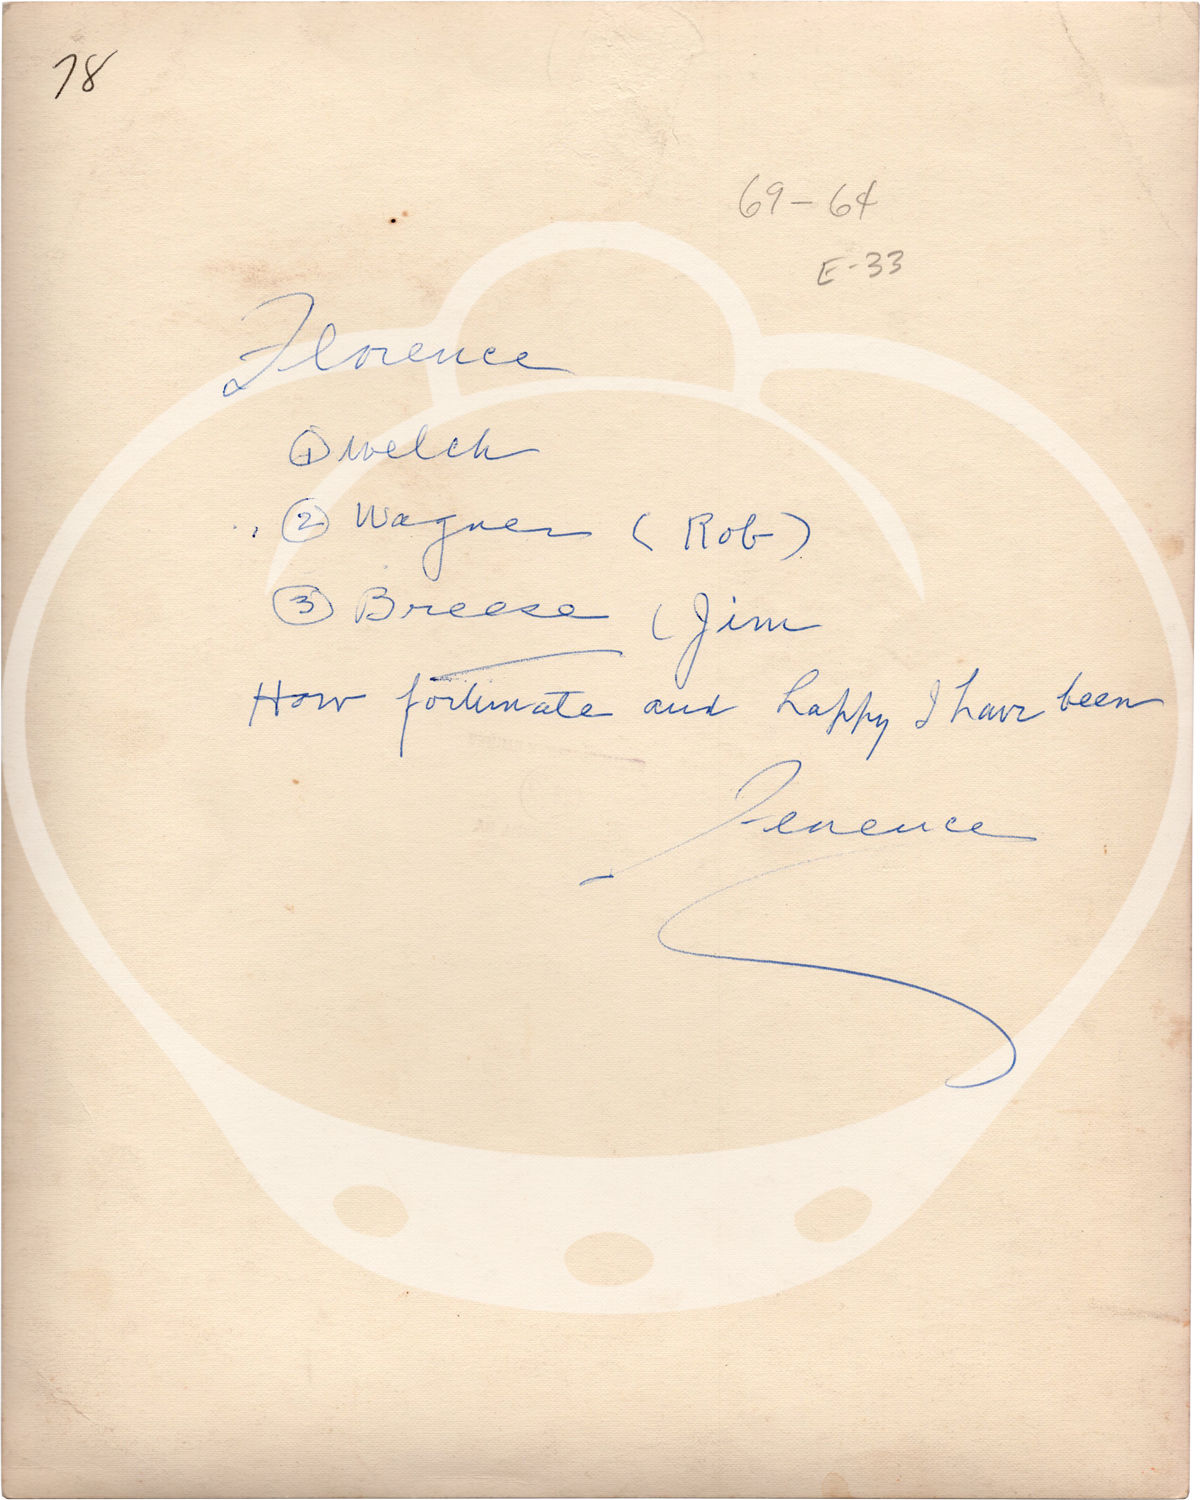 78
69-64
E-33
Florence
① Welch
② Wagner (Rob)
③ Breese (Jim
How fortunate and happy I have been